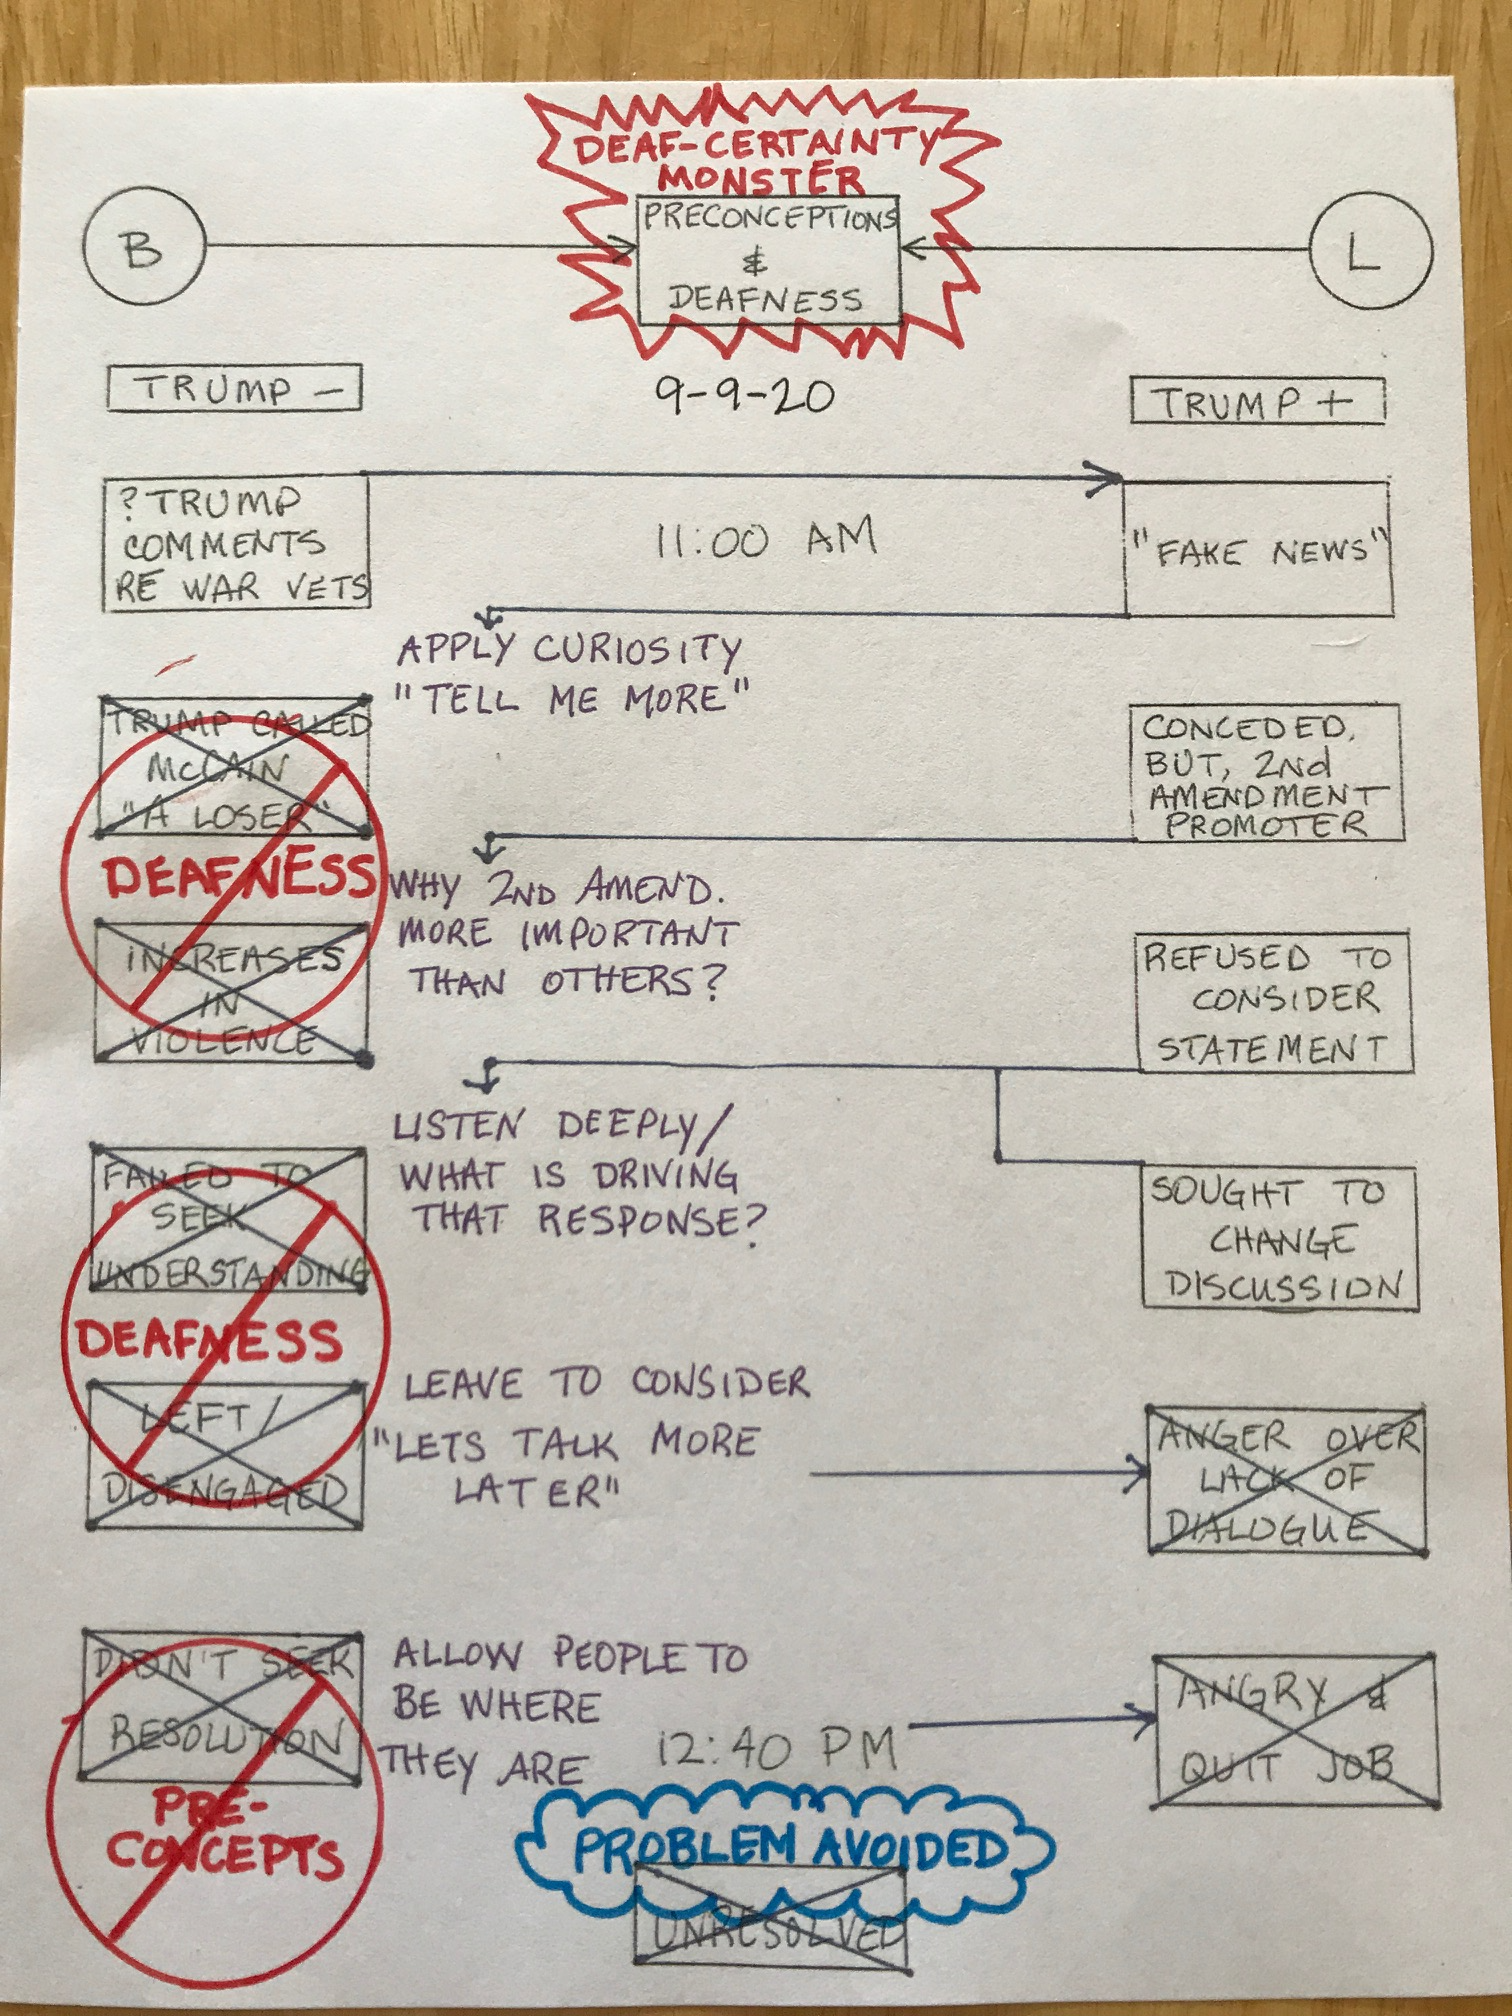 DEAF-CERTAINTY
MONSTER
B
PRECONCEPTIONS
&
DEAFNESS
L
TRUMP -
9-9-20
TRUMP +
? TRUMP
COMMENTS
RE WAR VETS
11:00 AM
"FAKE NEWS"
APPLY CURIOSITY
"TELL ME MORE"
TRUMP CALLED
McCAIN
"A LOSER"
CONCEDED,
BUT, 2nd
AMENDMENT
PROMOTER
DEAFNESS
WHY 2ND AMEND.
MORE IMPORTANT
THAN OTHERS?
INCREASES
IN
VIOLENCE
REFUSED TO
CONSIDER
STATEMENT
LISTEN DEEPLY/
WHAT IS DRIVING
THAT RESPONSE?
FAILED TO
SEEK
UNDERSTANDING
SOUGHT TO
CHANGE
DISCUSSION
DEAFNESS
LEFT/
DISENGAGED
LEAVE TO CONSIDER
"LETS TALK MORE
LATER"
ANGER OVER
LACK OF
DIALOGUE
DIDN'T SEEK
RESOLUTION
ALLOW PEOPLE TO
BE WHERE
THEY ARE
12:40 PM
ANGRY &
QUIT JOB
PRE-
CONCEPTS
PROBLEM AVOIDED
UNRESOLVED